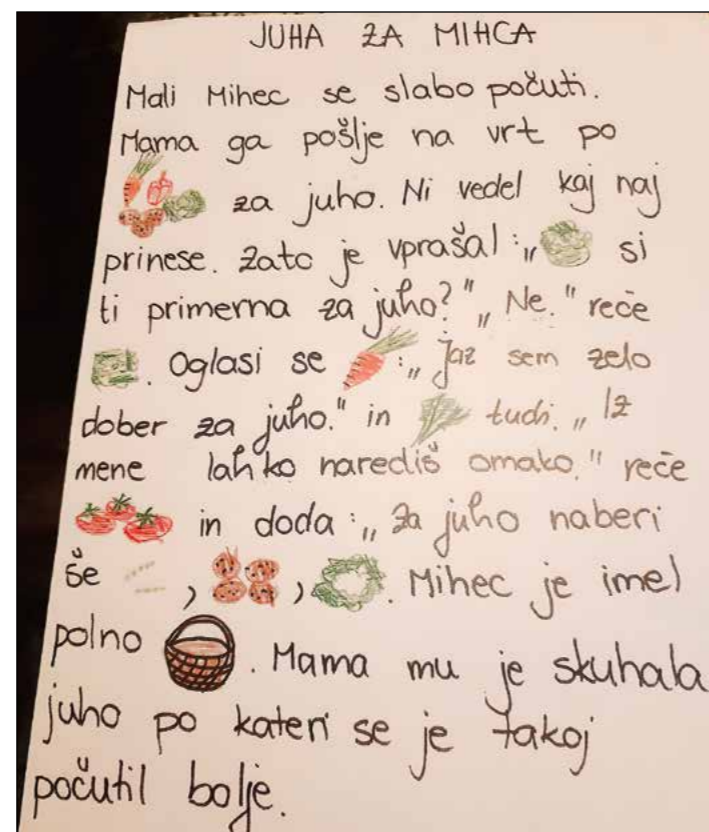 JUHA ZA MIHCA
Mali Mihec se slabo počuti.
Mama ga pošlje na vrt po
za juho. Ni vedel kaj naj
prinese. Zato je vprašal:„ si
ti primerna za juho?"„Ne." reče
. Oglasi se :„Jaz sem zelo
dober za juho." in tudi. „Iz
mene lahko narediš omako." reče
in doda:„Za juho naberi
še , , . Mihec je imel
polno . Mama mu je skuhala
juho po kateri se je takoj
počutil bolje.